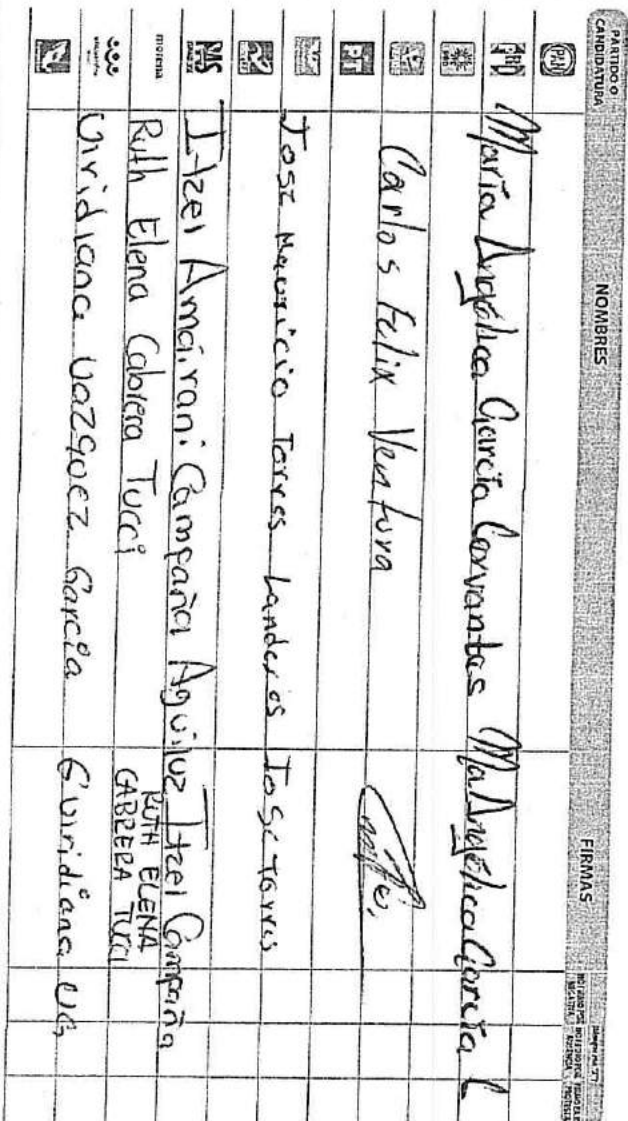 PARTIDO O CANDIDATURA NOMBRES FIRMAS
PAN
PRD María Angélica García Cervantes Ma Angélica García C
Carlos Felix Ventura
PT
Jose Mauricio Torres Landeros Jose Torres
MAS Itzel Amairani Campaña Aguiluz Itzel Campaña
morena Ruth Elena Cabrera Tucci RUTH ELENA CABRERA TUCCI
encuentro Viridiana Vazquez García